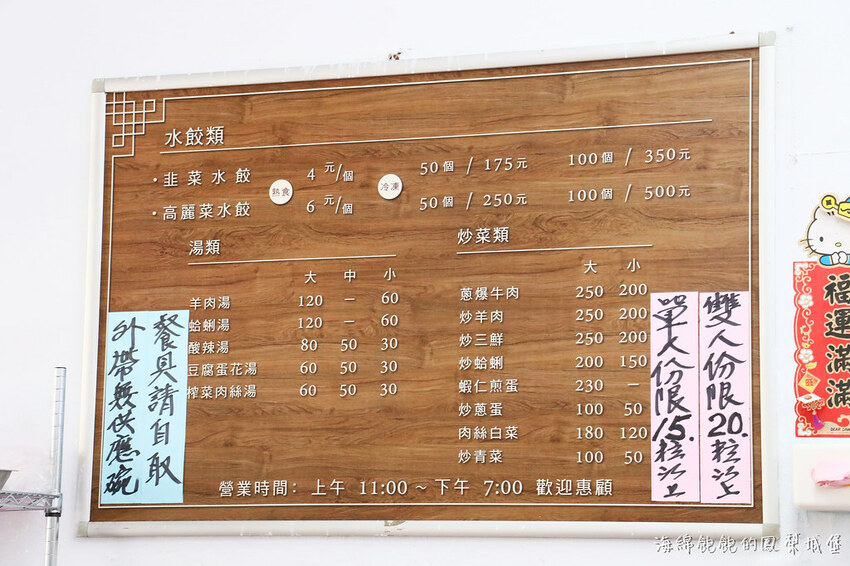 水餃類
・韭菜水餃 熱食 4元/個 冷凍 50個 / 175元 100個 / 350元
・高麗菜水餃 6元/個 50個 / 250元 100個 / 500元
湯類
大 中 小
羊肉湯 120 — 60
蛤蜊湯 120 — 60
酸辣湯 80 50 30
豆腐蛋花湯 60 50 30
榨菜肉絲湯 60 50 30
炒菜類
大 小
蔥爆牛肉 250 200
炒羊肉 250 200
炒三鮮 250 200
炒蛤蜊 200 150
蝦仁煎蛋 230 —
炒蔥蛋 100 50
肉絲白菜 180 120
炒青菜 100 50
營業時間: 上午 11:00~下午 7:00 歡迎惠顧
餐具請自取
外帶無供應碗
雙人份限20.粒以上
單人份限15.粒以上
福運滿滿
海綿飽飽的鳳梨城堡